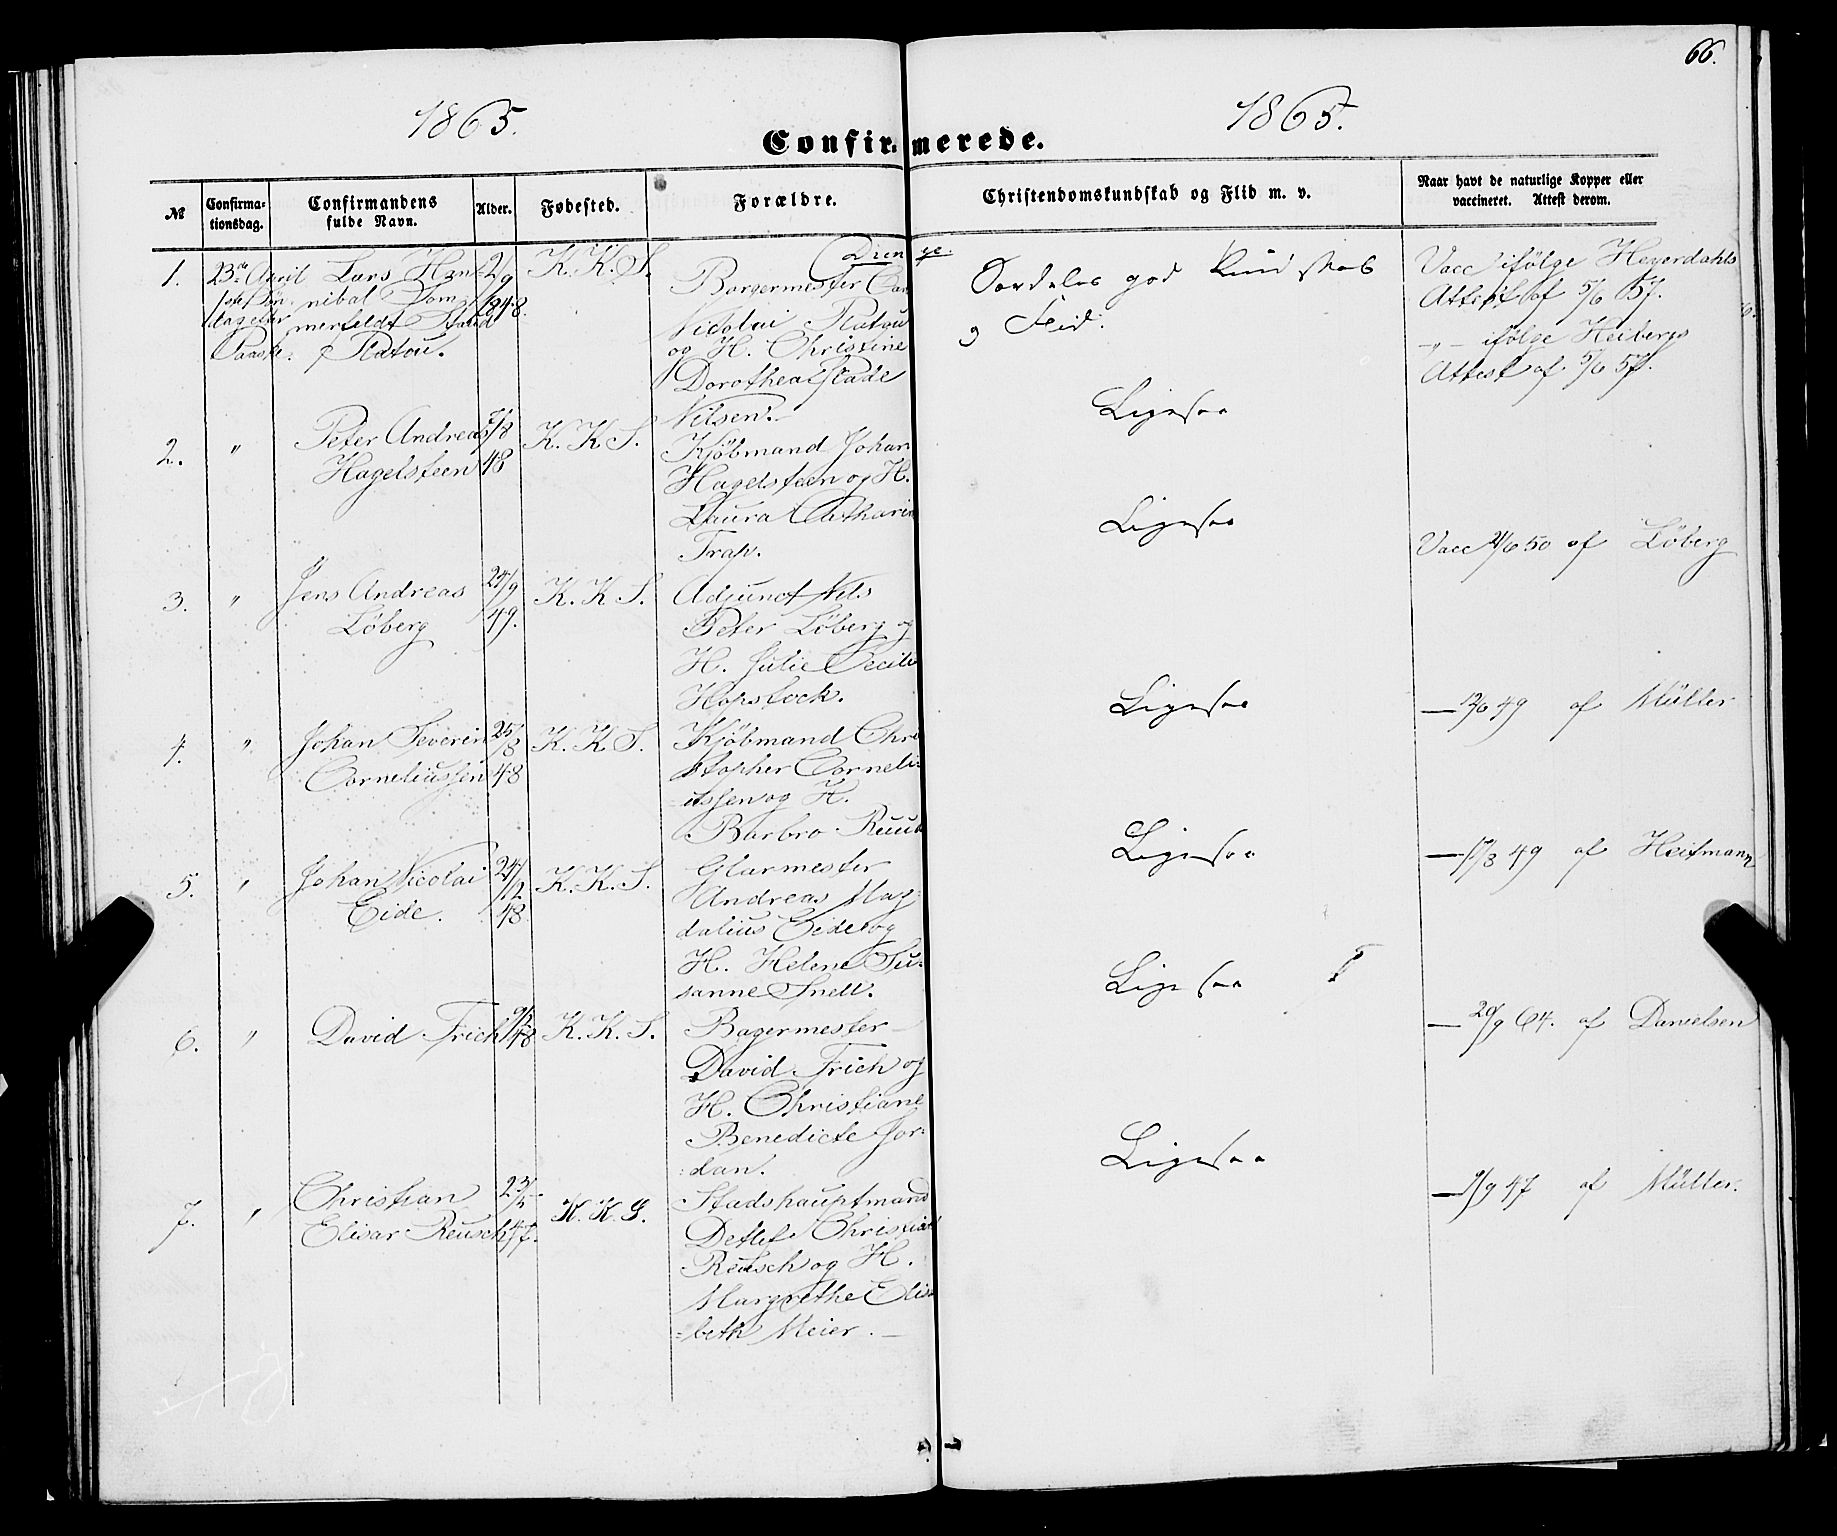 66.
1865.
1865.
Confirmerede.
№
Confirma-
tionsdag.
Confirmandens
fulde Navn.
Alder.
Fødested.
Forældre.
Christendomskundskab og Flid m. v.
Naar havt de naturlige Kopper eller
vaccineret. Attest derom.
Drenge.
1.
23de April
1ste Søn-
dag efter
Paaske.
Lars Han-
nibal Som-
merfeldt Stoud
Platou.
2/9
1848.
K. K. S.
Borgermester Carl
Nicolai Platou
og H. Christine
Dorothea
Nilsen.
Særdeles god Kundskab
og Flid.
Vacc ifølge Heyerdahls
Attest af 5/6 57.
-„- ifølge Heibergs
Attest af 5/6 57.
2.
"
Peter Andreas
Hagelsteen
7/8
48
K. K. S.
Kjöbmand Johan
Hagelsteen og H.
Laura Catharine
Trap.
Ligesaa
3.
"
Jens Andreas
Löberg
24/9
49.
K. K. S.
Adjunct Nils
Peter Löberg og
H. Julie Cecilie
Hopstock.
Ligesaa
Vacc 21/6 50 af Löberg
4.
"
Johan Severin
Corneliussen
25/8
48
K. K. S.
Kjöbmand Chri
stopher Corneli-
ussen og H.
Barbro Ruud
Ligesaa
— 12/6 49 af Müller
5.
"
Johan Nicolai
Eide.
24/12
48
K. K. S.
Glarmester
Andreas Mag-
dalius Eide og
H. Helene Su-
sanne Snell.
Ligesaa
— 17/8 49 af Heitmann
6.
"
David Frich
48
K. K. S.
Bagermester
David Frich og
H. Christiane
Benedicte Jor-
dan.
Ligesaa
— 20/9 64. af Danielsen
7.
"
Christian
Elisar Reusch
23/5
47.
K. K. S.
Stadshauptmand
Detlef Christian
Reusch og H.
Margrethe Elisa
beth Meier.
Ligesaa
— 9/9 47 af Müller.